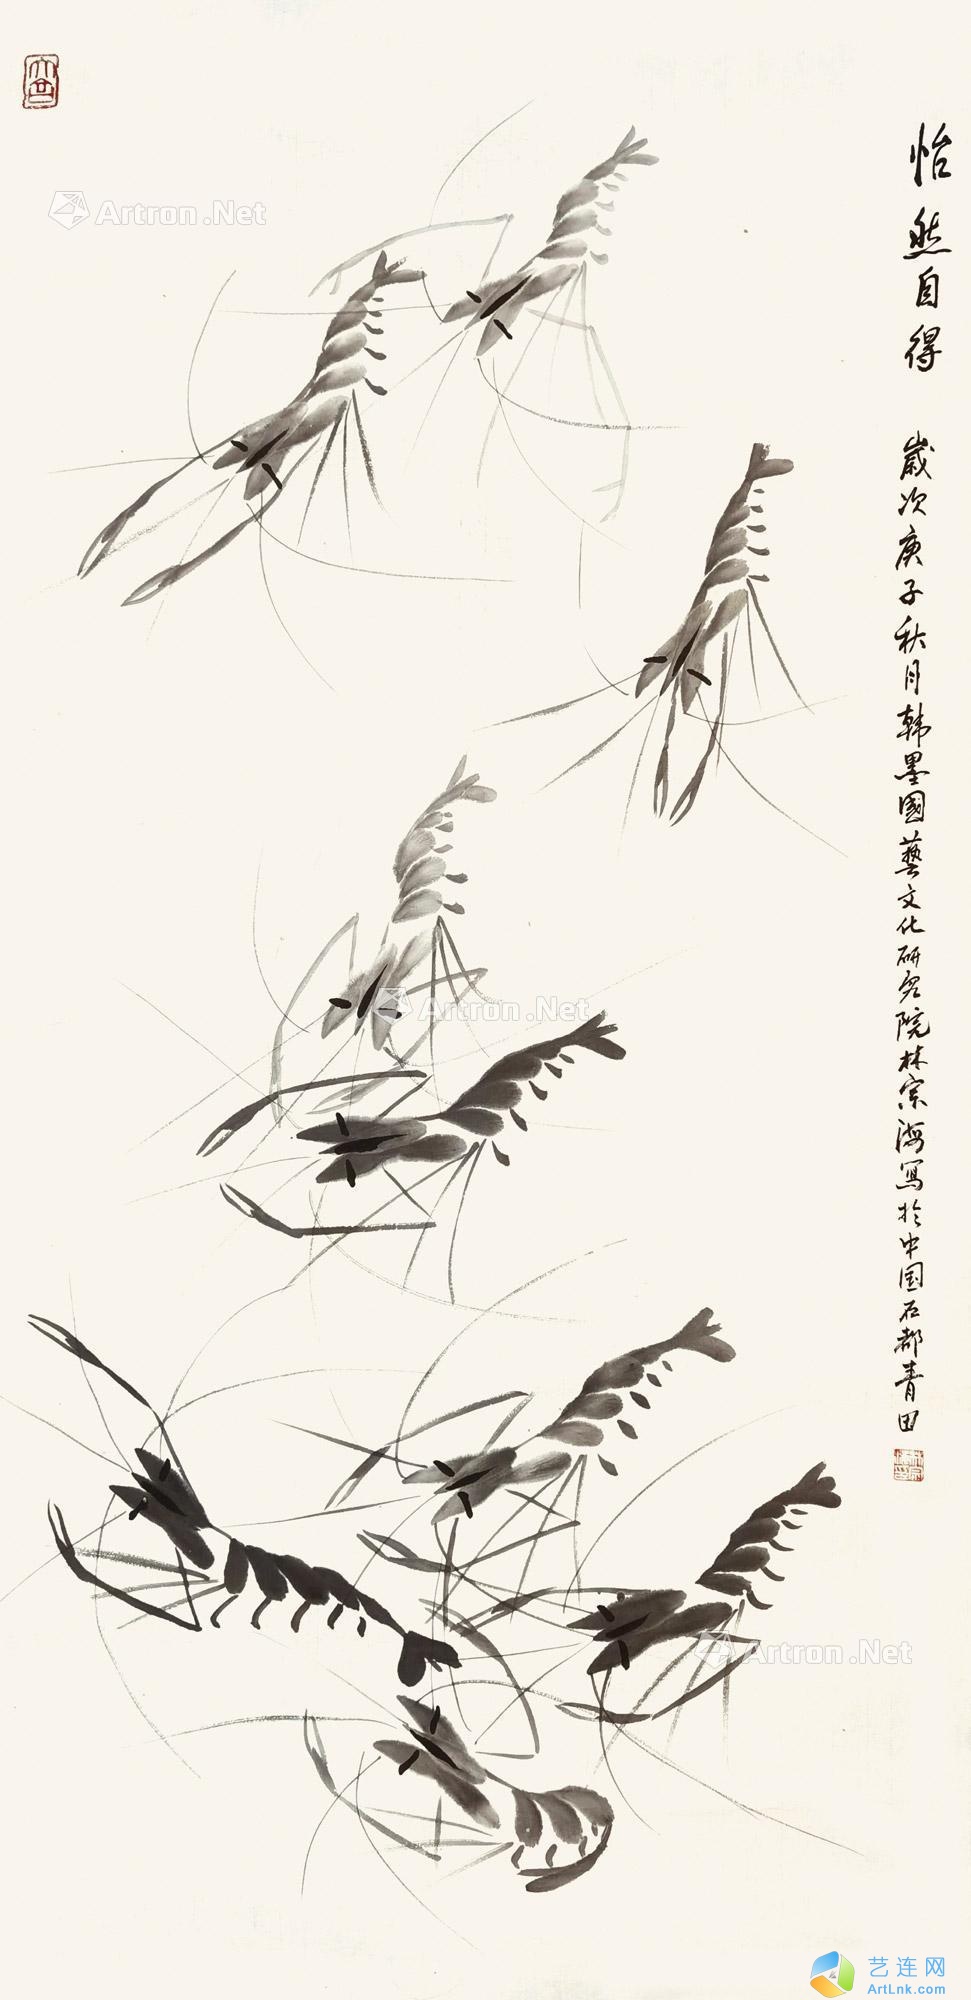 怡然自得
歲次庚子秋月韩墨國藝文化研究院林宗海寫於中国石都青田
Artron.Net
Artron.Net
Artron.Net
艺连网
ArtLnk.com